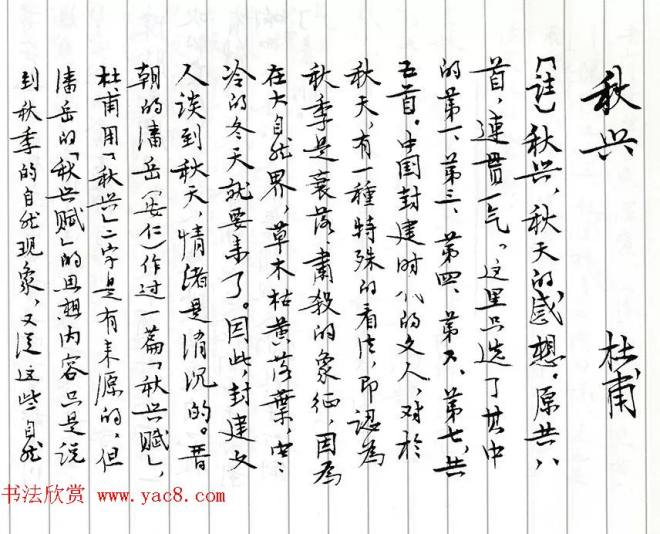 秋兴 杜甫
「註」秋兴,秋天的感想。原共八
首,連貫一气。这里只选了其中
的第一、第三、第四、第五、第七,共
五首。中国封建时代的文人,对於
秋天,有一種特殊的看法,即認為
秋季是衰落、肃殺的象征,因為
在大自然界,草木枯黄落葉,寒
冷的冬天就要来了。因此,封建文
人谈到秋天,情绪是消沉的。晋
朝的潘岳(安仁)作过一篇「秋兴赋」,
杜甫用「秋兴」二字是有来源的,但
潘岳的「秋兴赋」的思想内容只是说
到秋季的自然现象,又從这些自然
书法欣赏 www.yac8.com